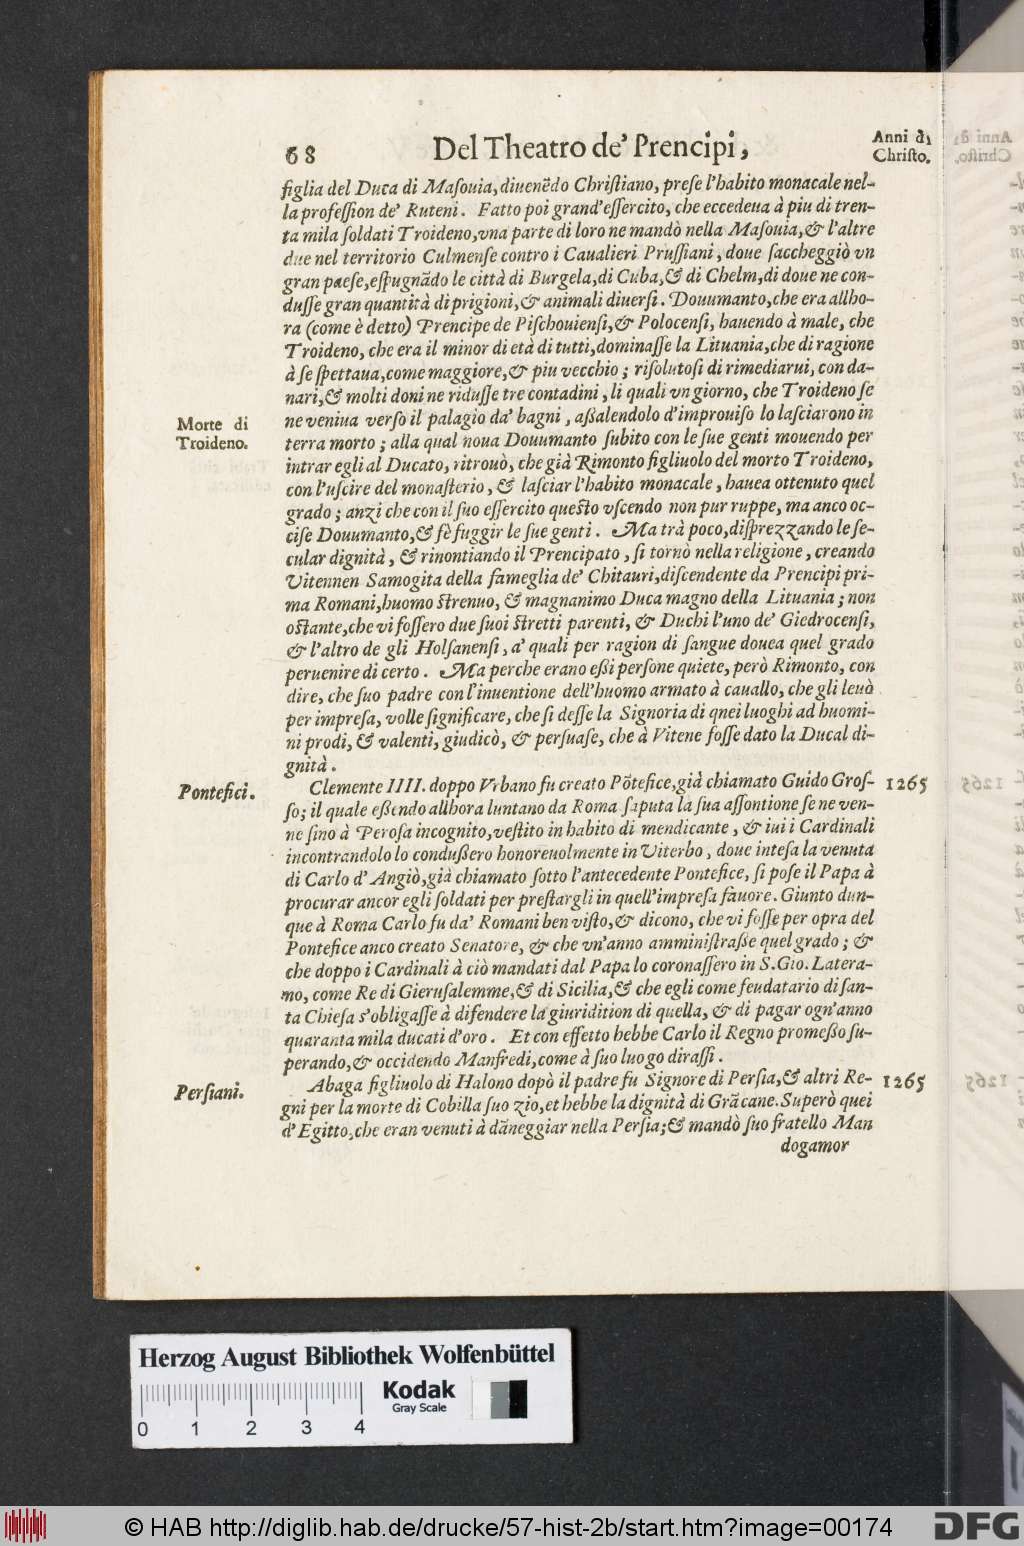 68 Del Theatro de' Prencipi, Anni di Christo.
figlia del Duca di Maſouia, diuenẽdo Chriſtiano, preſe l'habito monacale nel-
la profeſſion de' Ruteni. Fatto poi grand'eſſercito, che eccedeua à piu di tren-
ta mila ſoldati Troideno, vna parte di loro ne mandò nella Maſouia, & l'altre
due nel territorio Culmenſe contro i Caualieri Pruſſiani, doue ſaccheggiò vn
gran paeſe, eſpugnãdo le città di Burgela, di Cuba, & di Chelm, di doue ne con-
duſſe gran quantità di prigioni, & animali diuerſi. Douumanto, che era allho-
ra (come è detto) Prencipe de Piſchouienſi, & Polocenſi, hauendo à male, che
Troideno, che era il minor di età di tutti, dominaſſe la Lituania, che di ragione
à ſe ſpettaua, come maggiore, & piu vecchio; riſolutoſi di rimediarui, con da-
nari, & molti doni ne riduſſe tre contadini, li quali vn giorno, che Troideno ſe
Morte di Troideno.
ne veniua verſo il palagio da' bagni, aßalendolo d'improuiſo lo laſciarono in
terra morto; alla qual noua Douumanto ſubito con le ſue genti mouendo per
intrar egli al Ducato, ritrouò, che già Rimonto figliuolo del morto Troideno,
con l'uſcire del monaſterio, & laſciar l'habito monacale, hauea ottenuto quel
grado; anzi che con il ſuo eſſercito queſto vſcendo non pur ruppe, ma anco oc-
ciſe Douumanto, & fè fuggir le ſue genti. Ma trà poco, diſprezzando le ſe-
cular dignità, & rinontiando il Prencipato, ſi tornò nella religione, creando
Vitennen Samogita della fameglia de' Chitauri, diſcendente da Prencipi pri-
ma Romani, huomo ſtrenuo, & magnanimo Duca magno della Lituania; non
oſtante, che vi foſſero due ſuoi ſtretti parenti, & Duchi l'uno de' Giedrocenſi,
& l'altro de gli Holſanenſi, a' quali per ragion di ſangue douea quel grado
peruenire di certo. Ma perche erano eßi perſone quiete, però Rimonto, con
dire, che ſuo padre con l'inuentione dell'huomo armato à cauallo, che gli leuò
per impreſa, volle ſignificare, che ſi deſſe la Signoria di qnei luoghi ad huomi-
ni prodi, & valenti, giudicò, & perſuaſe, che à Vitene foſſe dato la Ducal di-
gnità.
Pontefici.
Clemente IIII. doppo Vrbano fu creato Põtefice, già chiamato Guido Groſ- 1265
ſo; il quale eßendo allhora luntano da Roma ſaputa la ſua aſſontione ſe ne ven-
ne ſino à Peroſa incognito, veſtito in habito di mendicante, & iui i Cardinali
incontrandolo lo condußero honoreuolmente in Viterbo, doue inteſa la venuta
di Carlo d'Angiò, già chiamato ſotto l'antecedente Pontefice, ſi poſe il Papa à
procurar ancor egli ſoldati per preſtargli in quell'impreſa fauore. Giunto dun-
que à Roma Carlo fu da' Romani ben viſto, & dicono, che vi foſſe per opra del
Pontefice anco creato Senatore, & che vn'anno amminiſtraße quel grado; &
che doppo i Cardinali à ciò mandati dal Papa lo coronaſſero in S. Gio. Latera-
no, come Re di Gieruſalemme, & di Sicilia, & che egli come feudatario di ſan-
ta Chieſa s'obligaſſe à difendere la giuridition di quella, & di pagar ogn'anno
quaranta mila ducati d'oro. Et con effetto hebbe Carlo il Regno promeßo ſu-
perando, & occidendo Manfredi, come à ſuo luogo diraſſi.
Perſiani.
Abaga figliuolo di Halono dopò il padre fu Signore di Perſia, & altri Re- 1265
gni per la morte di Cobilla ſuo zio, et hebbe la dignità di Grãcane. Superò quei
d'Egitto, che eran venuti à dãneggiar nella Perſia; & mandò ſuo fratello Man
dogamor
Herzog August Bibliothek Wolfenbüttel
0 1 2 3 4
Kodak
Gray Scale
© HAB http://diglib.hab.de/drucke/57-hist-2b/start.htm?image=00174
DFG